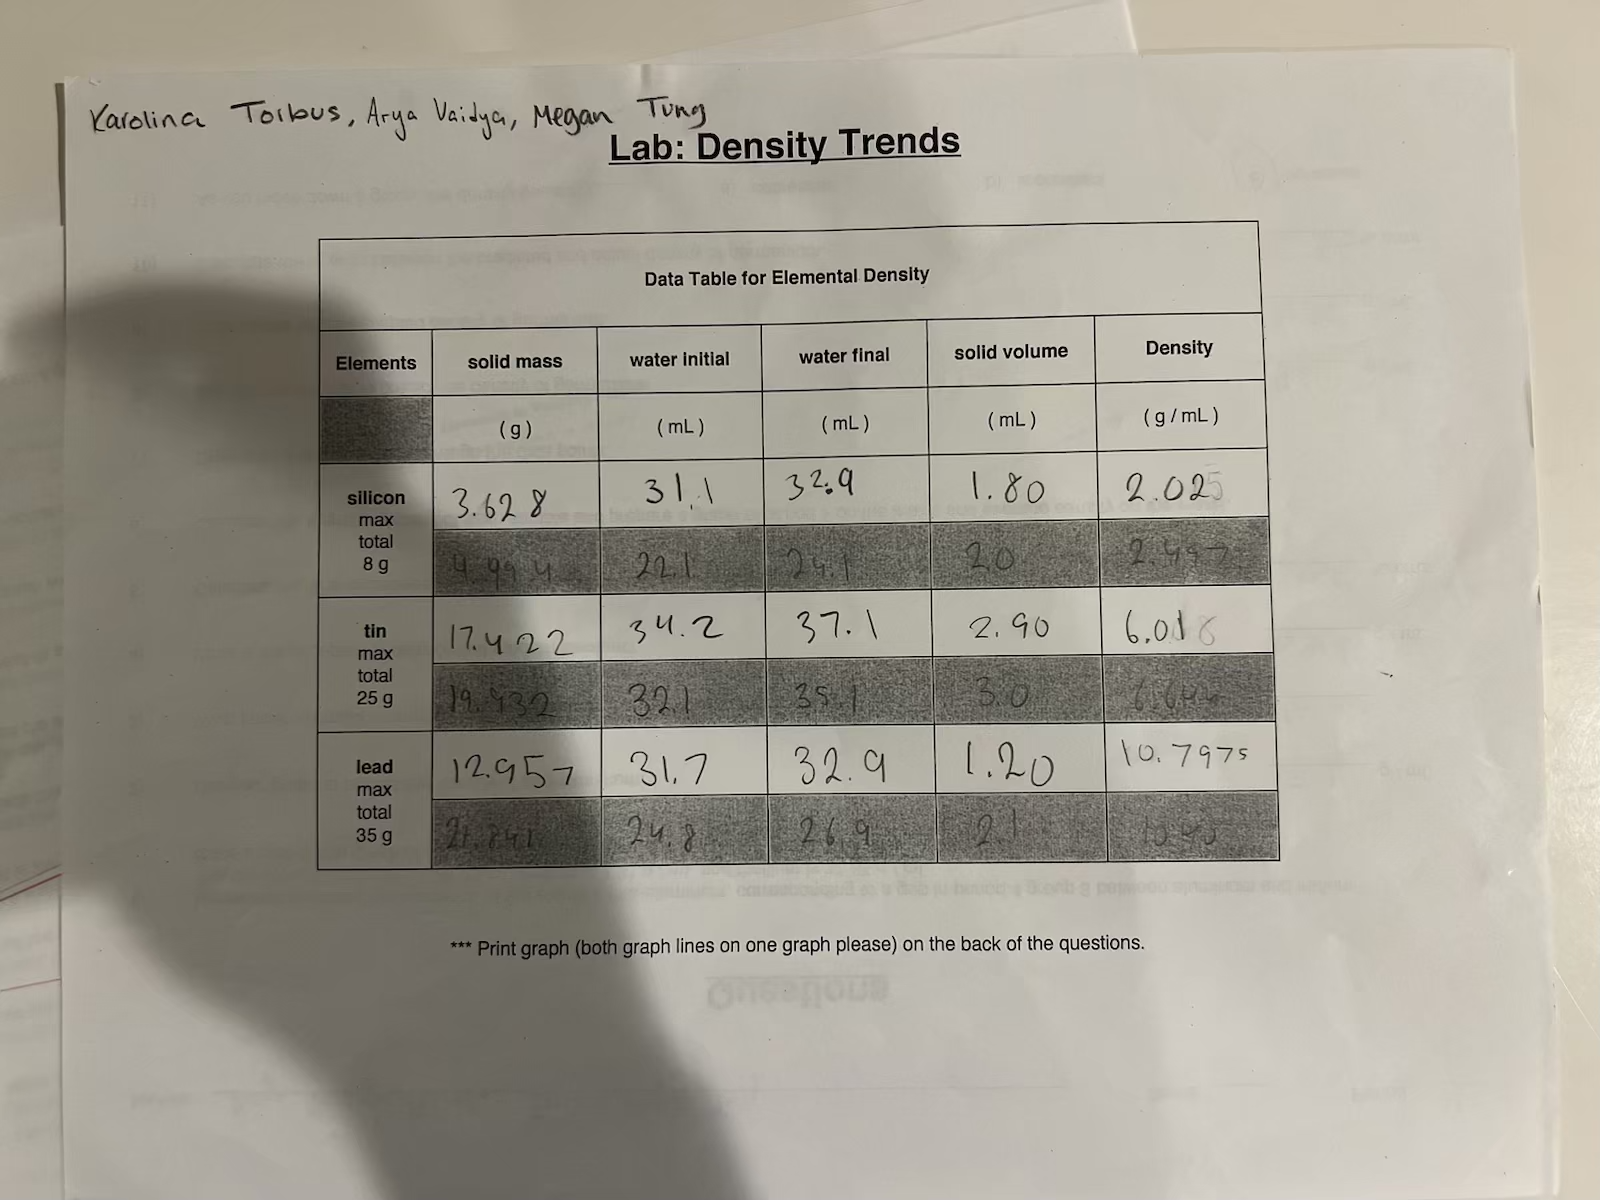 Karolina Torbus, Arya Vaidya, Megan Tung
Lab: Density Trends
Data Table for Elemental Density
Elements solid mass water initial water final solid volume Density
(g) (mL) (mL) (mL) (g/mL)
silicon max total 8 g
3.628 31.1 32.9 1.80 2.025
4.994 22.1 24.1 2.0 2.497
tin max total 25 g
17.422 34.2 37.1 2.90 6.018
19.932 32.1 35.1 3.0
lead max total 35 g
12.957 31.7 32.9 1.20 10.7975
21.841 24.8 26.9 2.1
*** Print graph (both graph lines on one graph please) on the back of the questions.